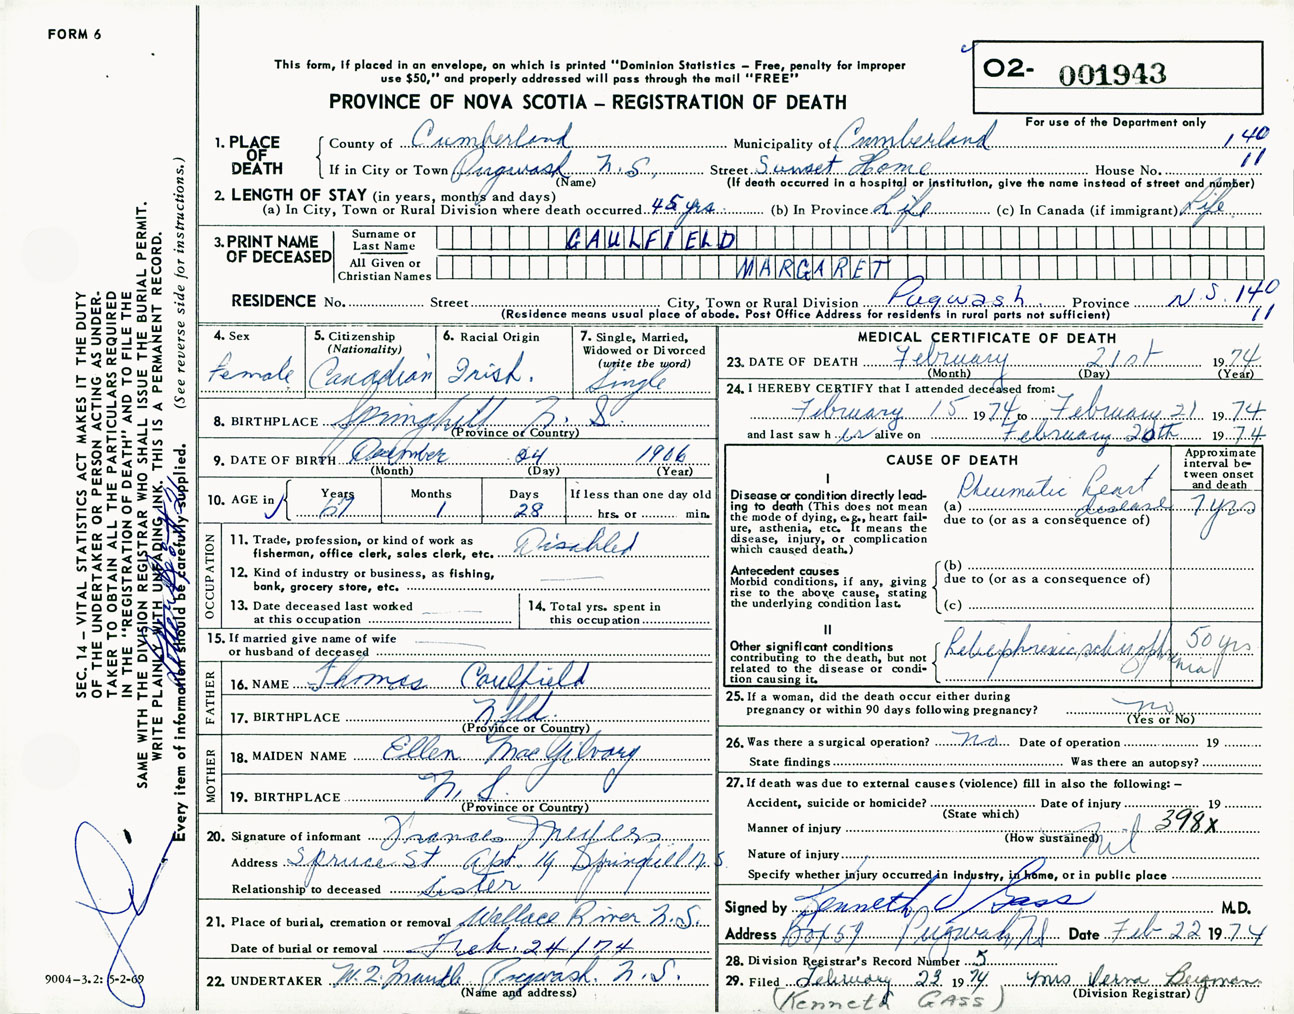 FORM 6
This form, if placed in an envelope, on which is printed "Dominion Statistics – Free, penalty for improper
use $50," and properly addressed will pass through the mail "FREE"
PROVINCE OF NOVA SCOTIA – REGISTRATION OF DEATH
O2- 001943
For use of the Department only
1. PLACE OF DEATH County of Cumberland Municipality of Cumberland 140
If in City or Town Pugwash N.S., Street Sunset Home House No. 11
(Name) (If death occurred in a hospital or institution, give the name instead of street and number)
2. LENGTH OF STAY (in years, months and days)
(a) In City, Town or Rural Division where death occurred 45 yrs. (b) In Province Life (c) In Canada (if immigrant) Life
3. PRINT NAME OF DECEASED
Surname or Last Name CAULFIELD
All Given or Christian Names MARGARET
RESIDENCE No. Street City, Town or Rural Division Pugwash Province N.S. 140
(Residence means usual place of abode. Post Office Address for residents in rural parts not sufficient) 11
4. Sex Female
5. Citizenship (Nationality) Canadian
6. Racial Origin Irish.
7. Single, Married, Widowed or Divorced (write the word) Single
8. BIRTHPLACE Springhill N. S.
(Province or Country)
9. DATE OF BIRTH December 24 1906
(Month) (Day) (Year)
10. AGE in Years 67 Months 1 Days 28 If less than one day old hrs. or min.
OCCUPATION
11. Trade, profession, or kind of work as fisherman, office clerk, sales clerk, etc. Disabled
12. Kind of industry or business, as fishing, bank, grocery store, etc.
13. Date deceased last worked at this occupation
14. Total yrs. spent in this occupation
15. If married give name of wife or husband of deceased
FATHER
16. NAME Thomas Caulfield
17. BIRTHPLACE Nfld.
(Province or Country)
MOTHER
18. MAIDEN NAME Ellen MacGilvary
19. BIRTHPLACE N. S.
(Province or Country)
20. Signature of informant Frances Meyers
Address Spruce St Apt. 14 Springhill N.S.
Relationship to deceased Sister
21. Place of burial, cremation or removal Wallace River N.S.
Date of burial or removal Feb. 24/74
22. UNDERTAKER Pugwash N.S.
(Name and address)
MEDICAL CERTIFICATE OF DEATH
23. DATE OF DEATH February 21st 1974
(Month) (Day) (Year)
24. I HEREBY CERTIFY that I attended deceased from:
February 15 1974 to February 21 1974
and last saw h er alive on February 20th 1974
CAUSE OF DEATH
Approximate interval between onset and death
I
Disease or condition directly leading to death (This does not mean the mode of dying, e.g., heart failure, asthenia, etc. It means the disease, injury, or complication which caused death.)
(a) Rheumatic heart disease 7 yrs
due to (or as a consequence of)
Antecedent causes
Morbid conditions, if any, giving rise to the above cause, stating the underlying condition last.
(b)
due to (or as a consequence of)
(c)
II
Other significant conditions contributing to the death, but not related to the disease or condition causing it.
hebephrenic schizophrenia 50 yrs
25. If a woman, did the death occur either during pregnancy or within 90 days following pregnancy? no
(Yes or No)
26. Was there a surgical operation? no Date of operation 19
State findings Was there an autopsy?
27. If death was due to external causes (violence) fill in also the following: –
Accident, suicide or homicide? Date of injury 19
(State which)
Manner of injury 398x
(How sustained)
Nature of injury Nil
Specify whether injury occurred in industry, in home, or in public place
Signed by Kenneth J Gass M.D.
Address Box 59 Pugwash, NS Date Feb 22 1974
28. Division Registrar's Record Number 5
29. Filed February 23 1974 Mrs Verna Bergman
(Division Registrar)
(Kenneth GASS)
SEC. 14 – VITAL STATISTICS ACT MAKES IT THE DUTY
OF THE UNDERTAKER OR PERSON ACTING AS UNDER-
TAKER TO OBTAIN ALL THE PARTICULARS REQUIRED
IN THE "REGISTRATION OF DEATH" AND TO FILE THE
SAME WITH THE DIVISION REGISTRAR WHO SHALL ISSUE THE BURIAL PERMIT.
WRITE PLAINLY WITH UNFADING INK. THIS IS A PERMANENT RECORD.
Every item of information should be carefully supplied. (See reverse side for instructions.)
9004–3.2: 5-2-69